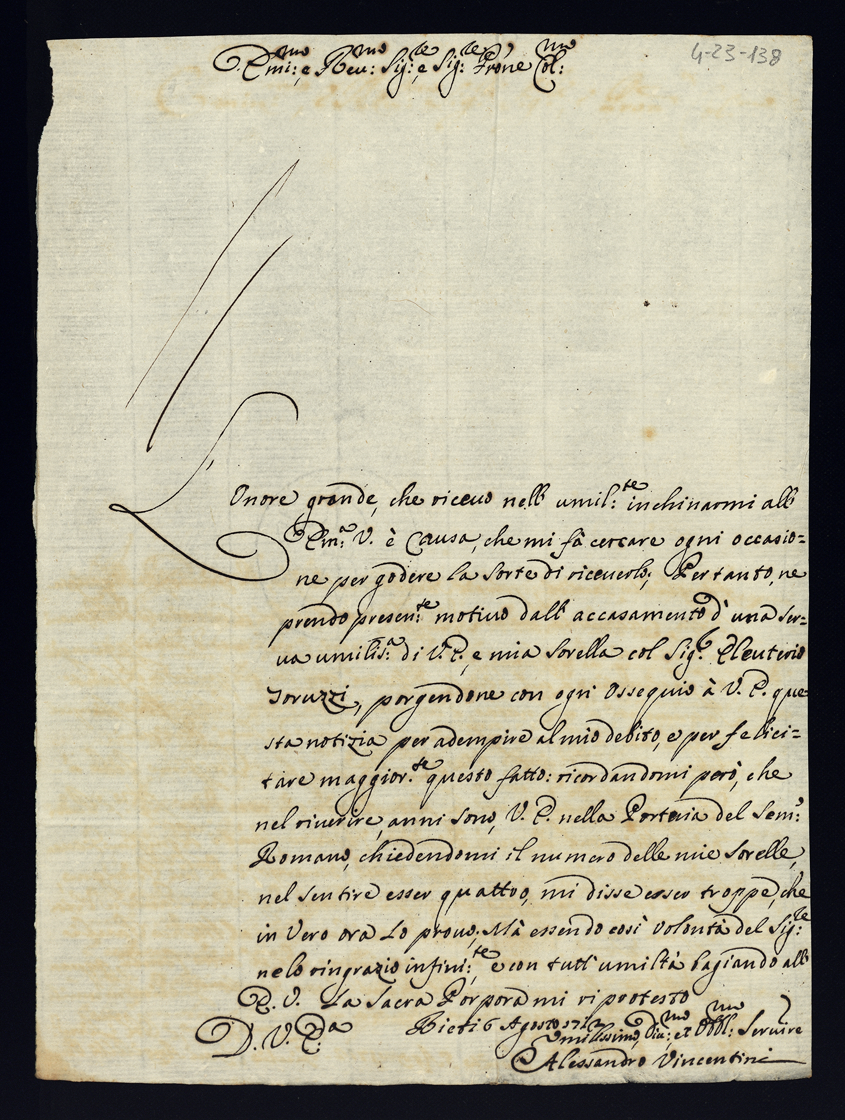 Emi:mo e Reu:mo Sig:re e Sig:re, Prone Col:mo
4-23-138
L'Onore grande, che riceuo nell' umil:te inchinarmi all'
Em:a V. è Causa, che mi fà cercare ogni occasio=
ne per godere la sorte di riceuerlo; Per tanto, ne
prendo presen:te motiuo dall' accasamento d'una ser=
ua umilis:a di V. E., e mia sorella col Sig:e Eleuterio
, porgendone con ogni Ossequio à V. E. que=
sta notizia per adempire al mio debito, e per felici=
tare maggior:te questo fatto: ricordandomi però, che
nel riuerire, anni sono, V. E. nella Porteria del Sem:o
Romano, chiedendomi il numero delle mie sorelle,
nel sentire esser quattro, mi disse esser troppe, che
in Vero ora Lo prouo; Mà essendo così Volontà del Sig:re
ne lo ringrazio infini:te e con tutt' umiltà bagiando all'
E. V. La Sacra Porpora mi riprotesto
D. V. E:a Rieti 6 Agosto
Vmilissimo, Diu:mo et Obbl:mo Seruire
Alessandro Vincentini